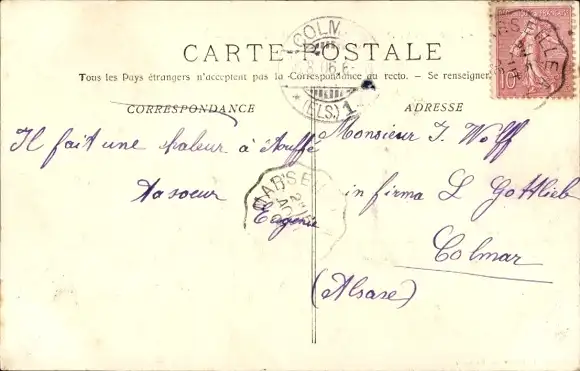 COLM
CARTE POSTALE
Tous les Pays étrangers n'acceptent pas la Correspondance au recto. — Se renseigner
(ELS.) 1
10
CORRESPONDANCE
Il fait une chaleur à étouffé
ta soeur
Eugenie
MARSEI
ADRESSE
Monsieur J. Wolff
in firma L Gottlieb
Colmar
(Alsace)